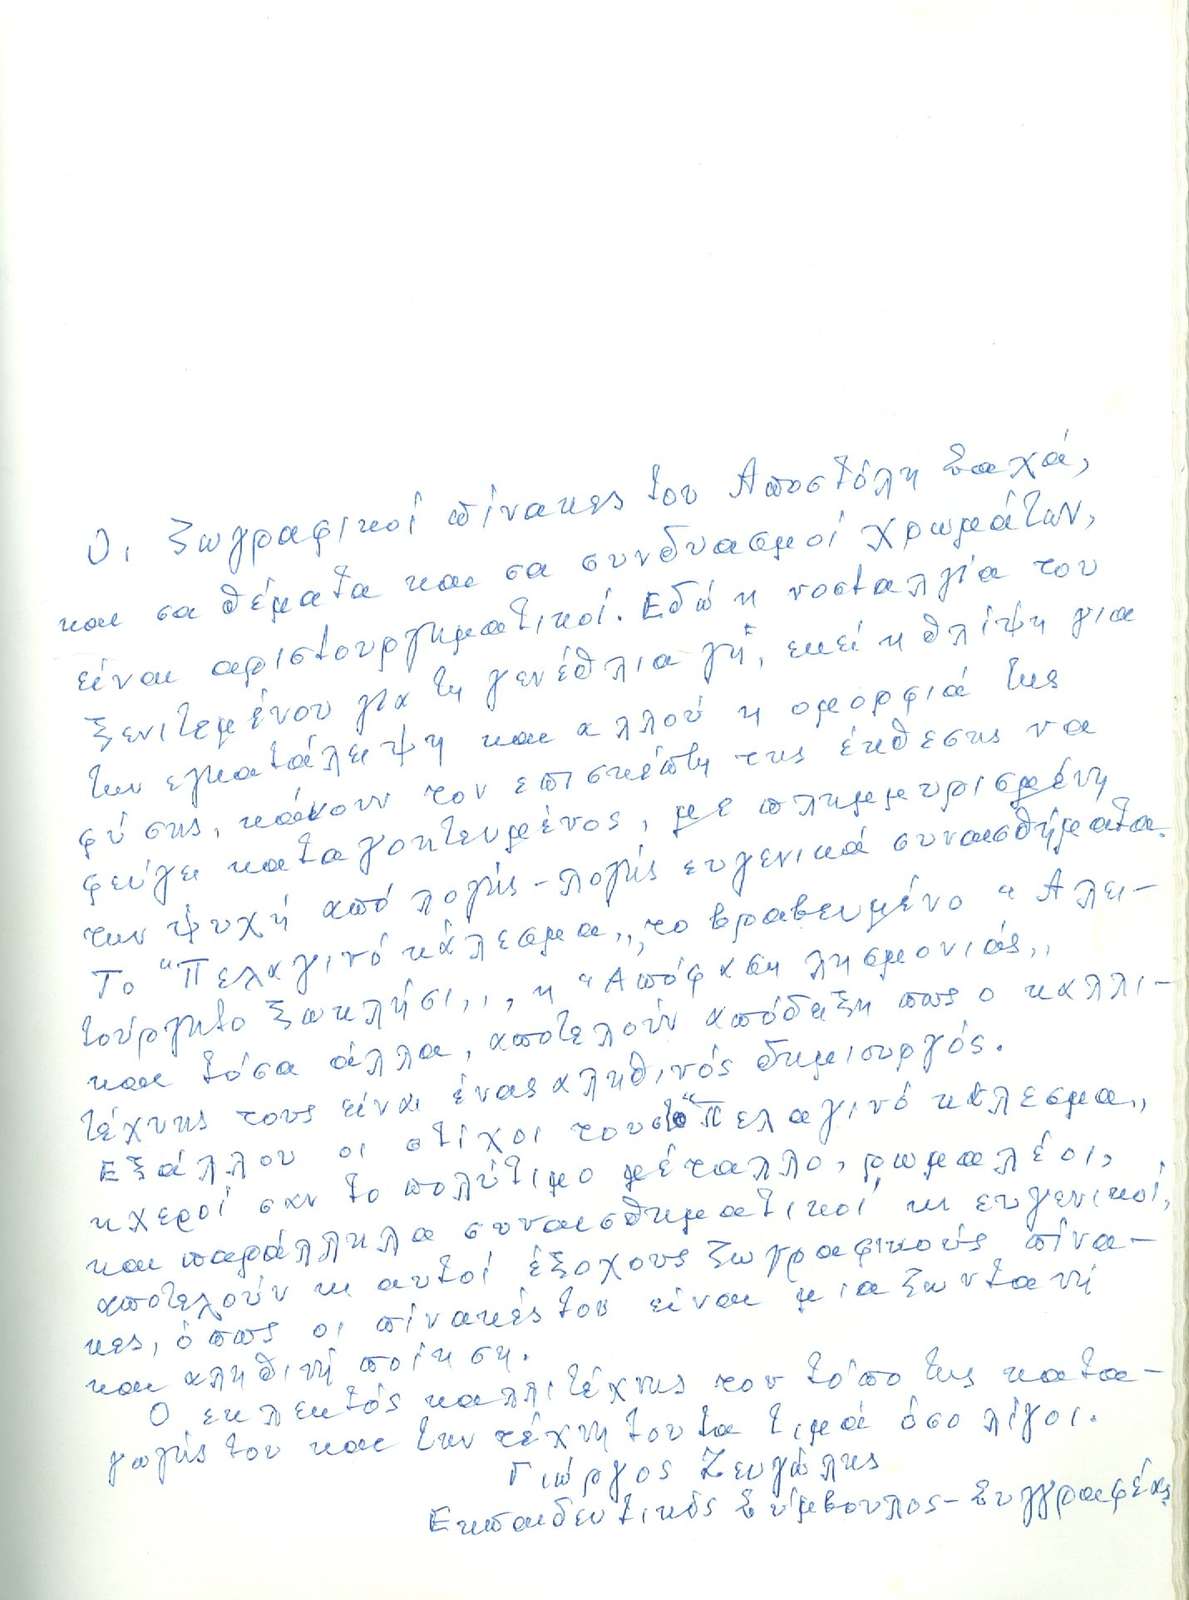 Οι ζωγραφικοί πίνακες του Αποστόλη Σαχά,
και σα θέματα και σα συνδυασμοί χρωμάτων,
είναι αριστουργηματικοί. Εδώ η νοσταλγία του
ξενιτεμένου για τη γενέθλια γη, εκεί η θλίψη για
την εγκατάλειψη και αλλού η ομορφιά της
φύσης, κάνουν τον επισκέπτη της έκθεσης να
φεύγει καταγοητευμένος, με πλημμυρισμένη
την ψυχή από λογής-λογής ευγενικά συναισθήματα.
Το "Πελαγινό κάλεσμα", το βραβευμένο "Αλει-
τούργητο ξωκλήσι", η "Απόφαση λησμονιάς"
και τόσα άλλα, αποτελούν απόδειξη πως ο καλλι-
τέχνης τους είναι ένας αληθινός δημιουργός.
Εξάλλου οι στίχοι του στο "Πελαγινό κάλεσμα",
ηχεροί σαν το πολύτιμο μέταλλο, ρωμαλέοι,
και παράλληλα συναισθηματικοί κι ευγενικοί,
αποτελούν κι αυτοί έξοχους ζωγραφικούς πίνα-
κες, όπως οι πίνακές του είναι μια ζωντανή
και αληθινή ποίηση.
Ο εκλεκτός καλλιτέχνης τον τόπο της κατα-
γωγής του και την τέχνη του τα τιμά όσο λίγοι.
Γιώργος Ζευγώλης
Εκπαιδευτικός Σύμβουλος-Συγγραφέας